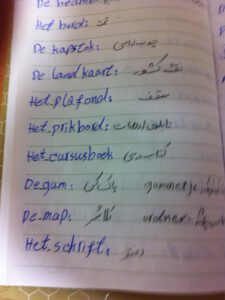 De beamer:
Het bord: تخته
De kapstok: چوب لباسی
De landkaart: نقشه کشور
Het plafond: سقف
Het prikbord: تابلوی اعلانات
Het cursusboek کتاب درسی
De gum: پاک کن gummetje
De map: کلاسور ordner:
Het schrift: دفتر